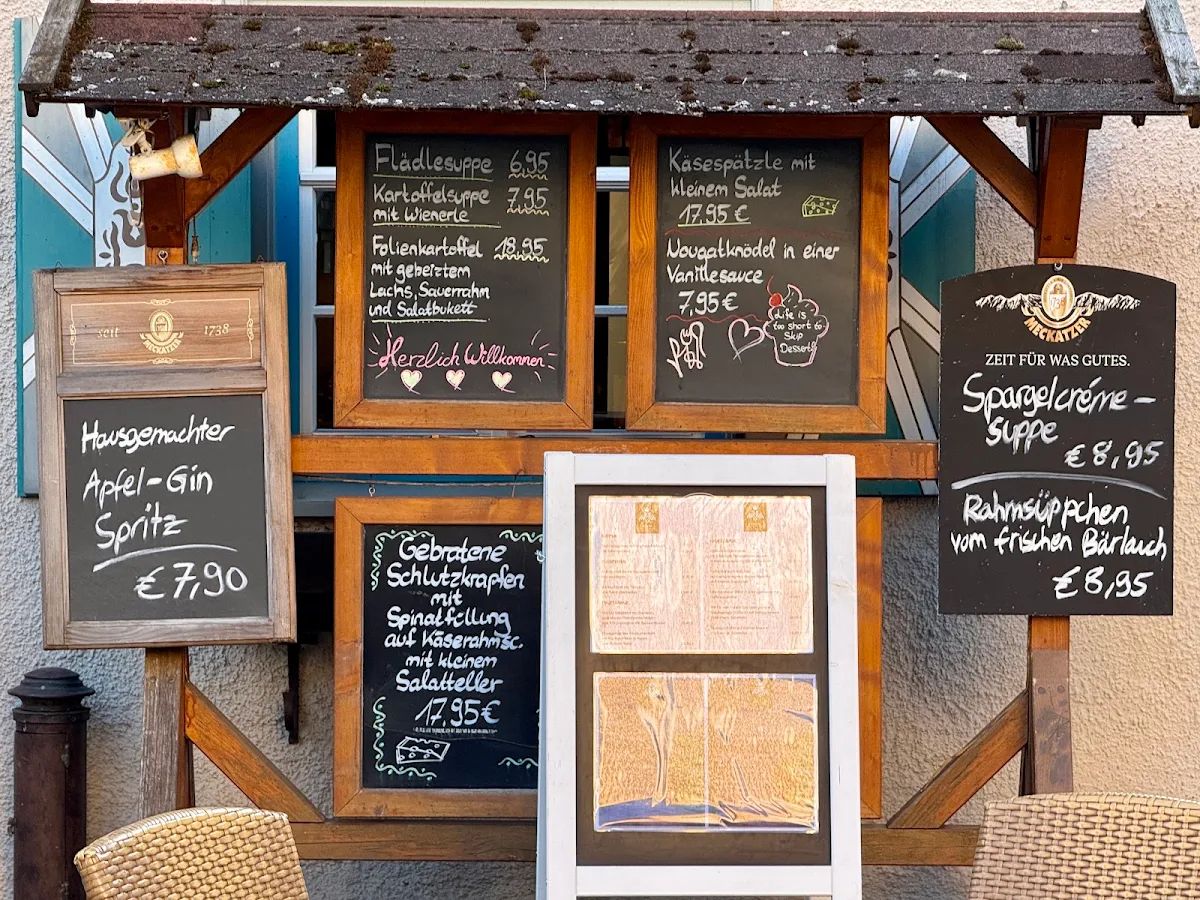 Flädlesuppe 6,95
Kartoffelsuppe 7,95
mit Wienerle
Folienkartoffel 18,95
mit gebeiztem
Lachs, Sauerrahm
und Salatbukett
Herzlich Willkommen
Käsespätzle mit
kleinem Salat
17,95 €
Nougatknödel in einer
Vanillesauce
7,95 €
Life is
too short to
Skip
Dessert
seit 1738
MECKATZER
Hausgemachter
Apfel-Gin
Spritz
€ 7,90
Gebratene
Schlutzkrapfen
mit
Spinatfüllung
auf Käserahmsc.
mit kleinem
Salatteller
17,95€
MECKATZER
ZEIT FÜR WAS GUTES.
Spargelcréme-
suppe
€ 8,95
Rahmsüppchen
vom frischen Bärlauch
€ 8,95